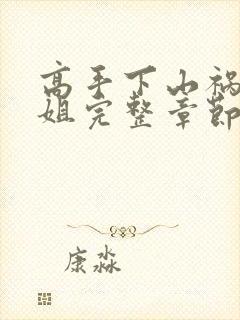 高手下山祸
姐完整章节
康淼